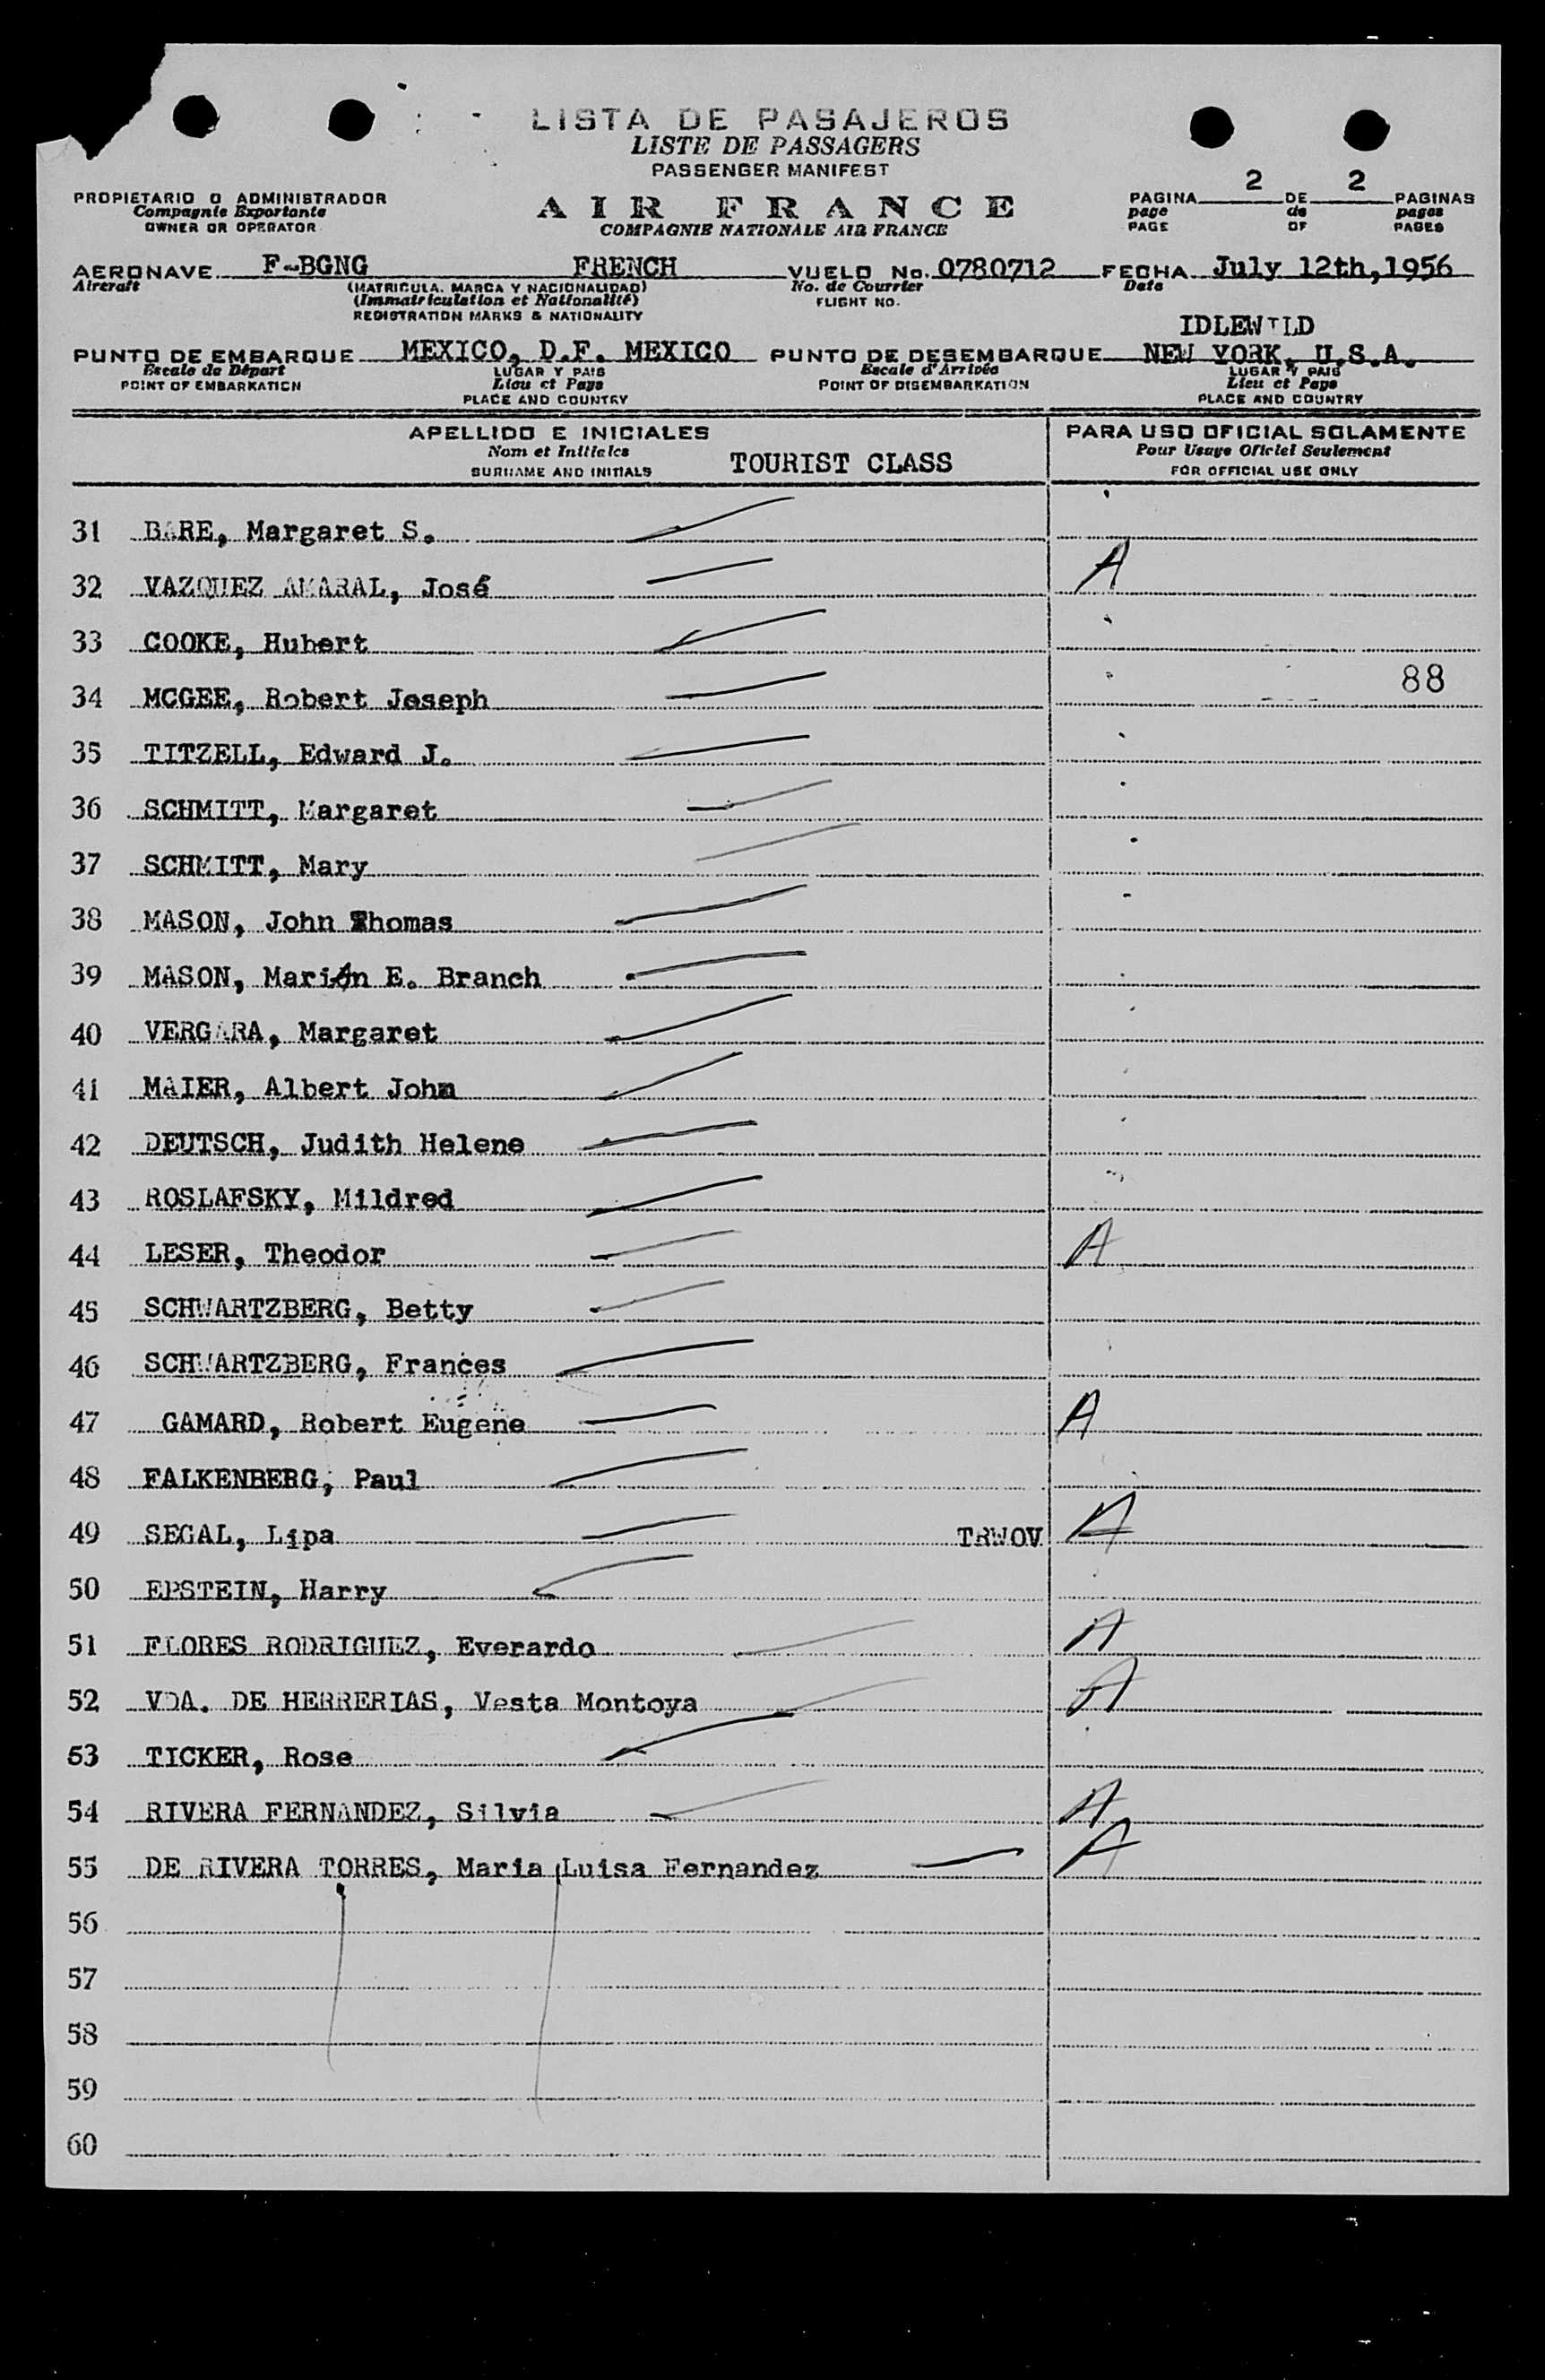 LISTA DE PASAJEROS
LISTE DE PASSAGERS
PASSENGER MANIFEST
PROPIETARIO O ADMINISTRADOR
Compagnie Exportante
OWNER OR OPERATOR
AIR FRANCE
COMPAGNIE NATIONALE AIR FRANCE
PAGINA 2 DE 2 PAGINAS
page de pages
PAGE OF PAGES
AERONAVE F-BGNG FRENCH VUELO No. 0780712 FECHA July 12th,1956
Aircraft (MATRICULA. MARCA Y NACIONALIDAD) No. de Courrier Date
(Immatriculation et Nationalité) FLIGHT NO.
REGISTRATION MARKS & NATIONALITY
IDLEWILD
PUNTO DE EMBARQUE MEXICO, D.F. MEXICO PUNTO DE DESEMBARQUE NEW YORK, U.S.A.
Escale de Départ LUGAR Y PAIS Escale d'Arrivée LUGAR Y PAIS
POINT OF EMBARKATION Lieu et Pays POINT OF DISEMBARKATION Lieu et Pays
PLACE AND COUNTRY PLACE AND COUNTRY
APELLIDO E INICIALES PARA USO OFICIAL SOLAMENTE
Nom et Initiales TOURIST CLASS Pour Usage Oficiel Seulement
SURNAME AND INITIALS FOR OFFICIAL USE ONLY
31 BARE, Margaret S.
32 VAZQUEZ AMARAL, José A
33 COOKE, Hubert
34 MCGEE, Robert Joseph 88
35 TITZELL, Edward J.
36 SCHMITT, Margaret
37 SCHMITT, Mary
38 MASON, John Thomas
39 MASON, Marion E. Branch
40 VERGARA, Margaret
41 MAIER, Albert John
42 DEUTSCH, Judith Helene
43 ROSLAFSKY, Mildred
44 LESER, Theodor A
45 SCHWARTZBERG, Betty
46 SCHWARTZBERG, Frances
47 GAMARD, Robert Eugene A
48 FALKENBERG, Paul
49 SEGAL, Lipa TRWOV A
50 EPSTEIN, Harry
51 FLORES RODRIGUEZ, Everardo A
52 VDA. DE HERRERIAS, Vesta Montoya A
53 TICKER, Rose
54 RIVERA FERNANDEZ, Silvia A
55 DE RIVERA TORRES, Maria Luisa Fernandez A
56
57
58
59
60